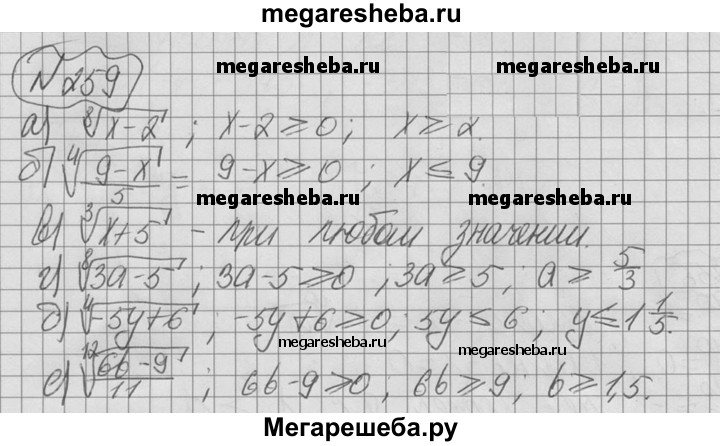 megaresheba.ru
N 259
megaresheba.ru megaresheba.ru
а) ⁸√(x-2) ; x-2 ≥ 0 ; x ≥ 2.
б) ⁴√((9-x)/5) = 9-x ≥ 0 ; x ≤ 9.
megaresheba.ru megaresheba.ru
в) ³√(x+5) - при любом значении.
г) ⁸√(3a-5) ; 3a-5 ≥ 0 ; 3a ≥ 5 ; a ≥ 5/3
д) ⁴√(-5y+6) ; -5y+6 ≥ 0 ; 5y ≤ 6 ; y ≤ 1 1/5.
megaresheba.ru megaresheba.ru
е) ¹²√((6b-9)/11) ; 6b-9 ≥ 0 ; 6b ≥ 9 ; b ≥ 1,5.
Мегарешеба.ру